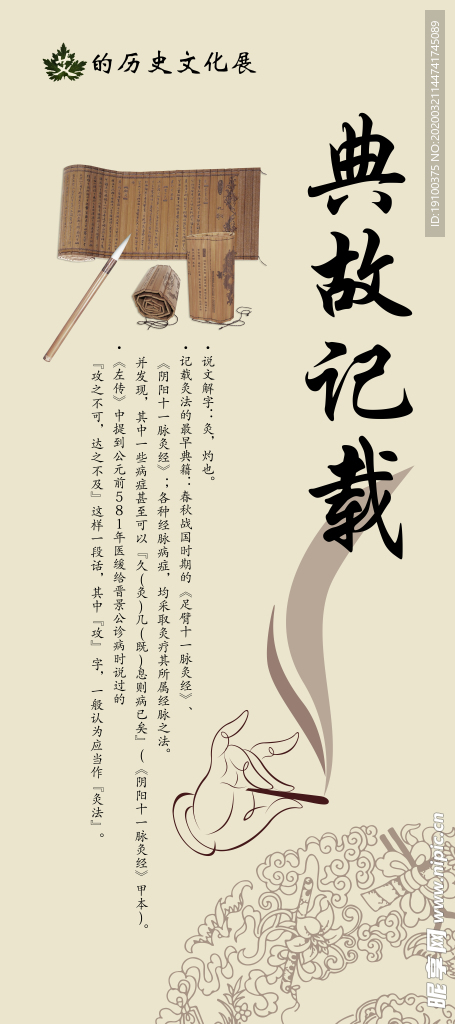 的历史文化展
典故记载
·说文解字：灸，灼也。
·记载灸法的最早典籍：春秋战国时期的《足臂十一脉灸经》、
《阴阳十一脉灸经》；各种经脉病症，均采取灸疗其所属经脉之法。
并发现，其中一些病症甚至可以『久(灸)几(既)息则病已矣』(《阴阳十一脉灸经》甲本)。
·《左传》中提到公元前581年医缓给晋景公诊病时说过的
『攻之不可，达之不及』这样一段话，其中『攻』字，一般认为应当作『灸法』。
ID:19100375 NO:20200321144741745089
昵享网 www.nipic.cn